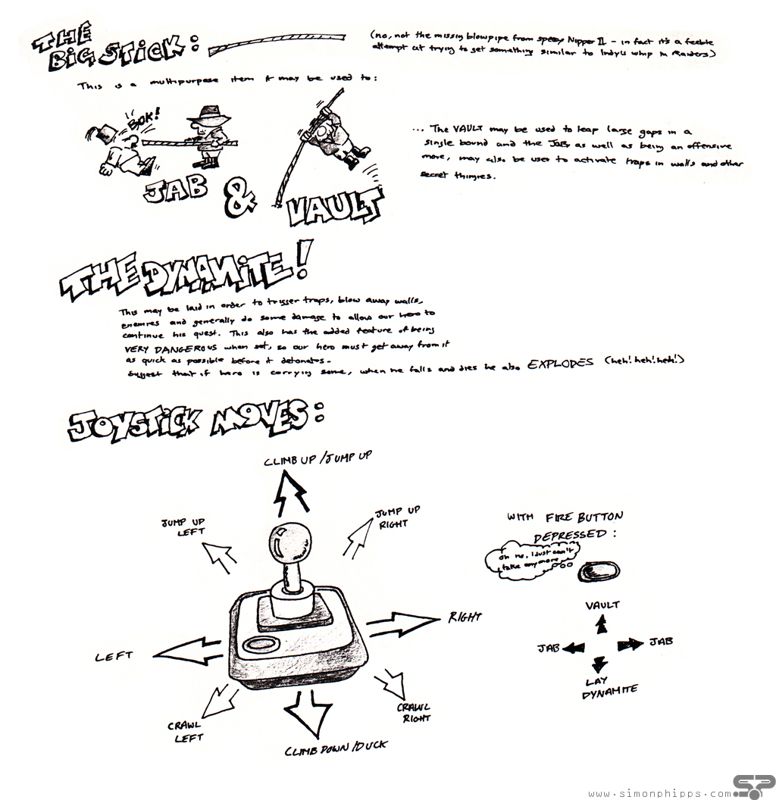 THE
BIG STICK:
(no, not the missing blowpipe from speedy Nipper II - in fact it's a feeble
attempt at trying to get something similar to Indy's whip in Raiders)
This is a multipurpose item it may be used to:
BOK!
JAB & VAULT
... The VAULT may be used to leap large gaps in a
single bound and the JAB as well as being an offensive
move, may also be used to activate traps in walls and other
secret thingies.
THE DYNAMITE!
This may be laid in order to trigger traps, blow away walls,
enemies and generally do some damage to allow our hero to
continue his quest. This also has the added feature of being
VERY DANGEROUS when set, so our hero must get away from it
as quick as possible before it detonates.
Suggest that if hero is carrying some, when he falls and dies he also EXPLODES (heh! heh! heh!)
JOYSTICK MOVES:
CLIMB UP / JUMP UP
JUMP UP
LEFT
JUMP UP
RIGHT
LEFT
RIGHT
CRAWL
LEFT
CRAWL
RIGHT
CLIMB DOWN / DUCK
WITH FIRE BUTTON
DEPRESSED:
oh no, I just can't
take anymore
VAULT
JAB
JAB
LAY
DYNAMITE
www.simonphipps.com
SP